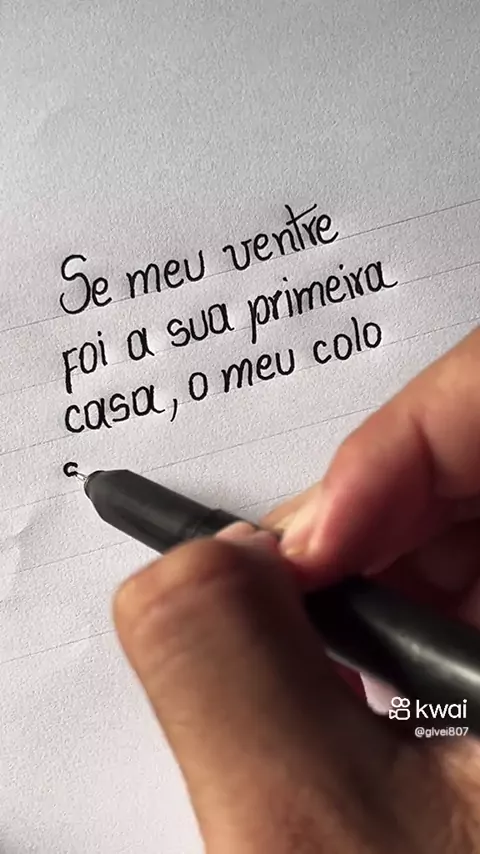 Se meu ventre
Foi a sua primeira
casa, o meu colo
s
kwai
@glvei807